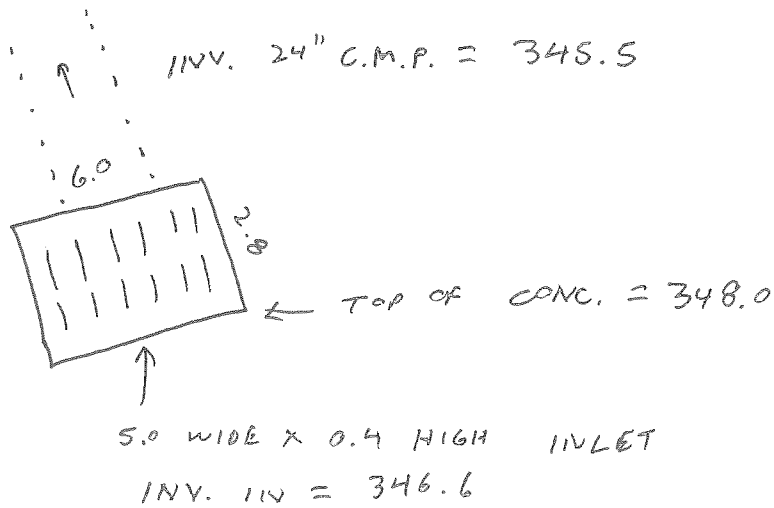 INV. 24" C.M.P. = 345.5
6.0
2.8
← TOP OF CONC. = 348.0
5.0 WIDE X 0.4 HIGH INLET
INV. IN = 346.6